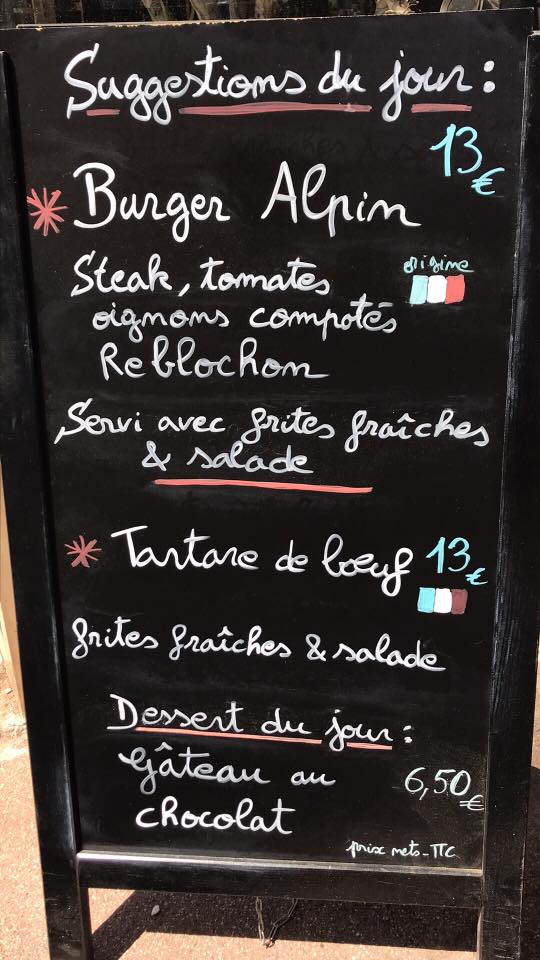 Suggestions du jour :
13 €
* Burger Alpin
Steak, tomates
origine
oignons compotés
Reblochon
Servi avec frites fraîches
& salade
* Tartare de bœuf 13 €
frites fraîches & salade
Dessert du jour :
Gâteau au
6,50 €
chocolat
prix nets - TTC